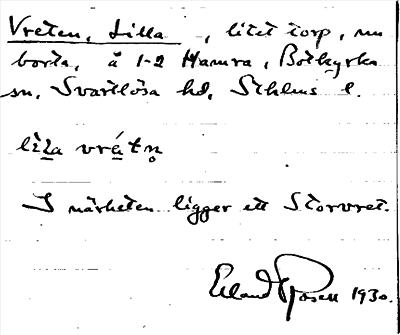 Vreten, Lilla, litet torp, nu
borta, å 1-2 Hamra, Botkyrka
sn, Svartlösa hd, Sthlms l.
lìla vrétn̥
I närheten ligger ett Storvret.
Erland Rosell 1930.